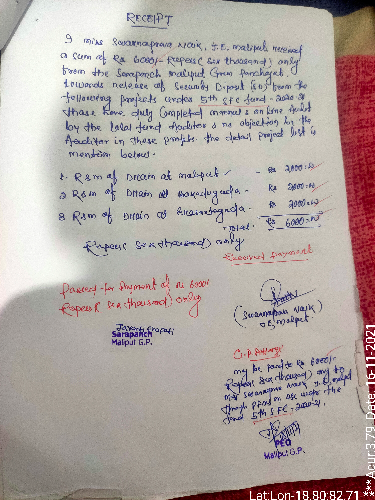 RECEIPT
I miss Swarnaprava Naik, J.E. maliput received
a sum of Rs 6000/- Rupees (Six thousand) only
from the Sarapanch maliput Gram Panchayat.
towards release of Security Deposit (SD) from the
following projects under 5th SFC fund - 2020-21
these have duly completed manual & online Audit
by the Local fund Auditor & no objection by the
Auditor in these projects. the details project list is
mention below.
1. R&m of Drain at maliput - Rs 2000=00
2. R&m of Drain at - Rs 2000=00
3. R&m of Drain at - Rs 2000=00
Total - Rs 6000=00
Rupees (Six thousand) only
Received payment
Passed for payment of Rs 6000/-
Rupees (Six thousand) only
(Swarnaprava Naik)
J.E. maliput
Sarapanch
Malipul G.P.
may be paid to Rs 6000/-
Rupees (Six thousand) only to
miss Swarnaprava Naik J.E. maliput
under the
fund 5th SFC - 2020-21.
PEO
Malipul G.P.
***Acur:3.79 Date:16-11-2021
Lat:Lon-18.80:82.71